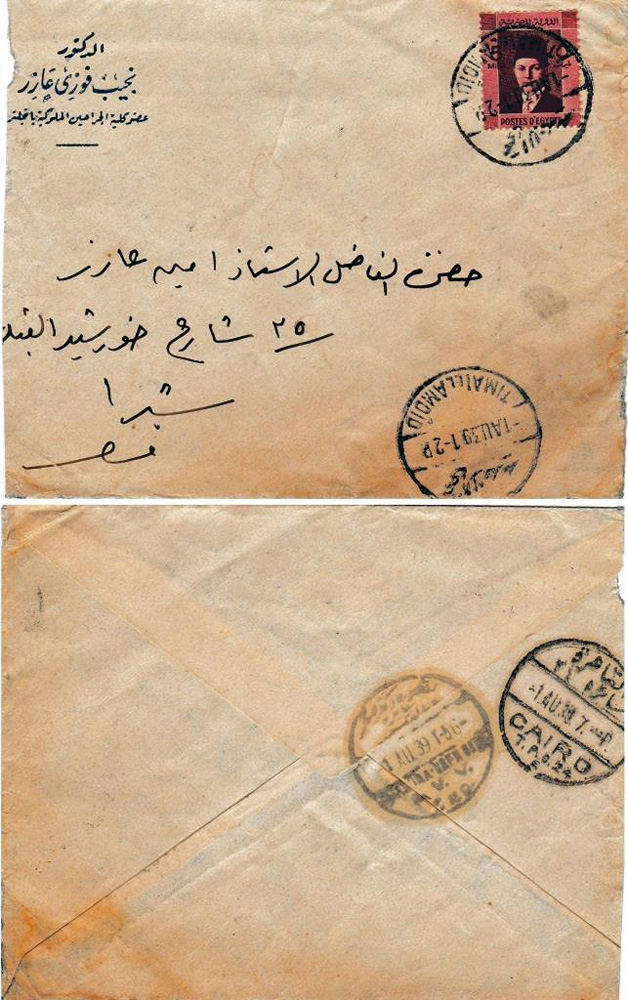 الدكتور
نجيب فوزى عازر
عضو كلية الجراحين الملوكية بانجلترا
الدولة المصرية
POSTES D'EGYPTE
حضرة الفاضل الاستاذ امين عازر
٢٥ شارع خورشيد
شبرا
مصر
TIMAI EL AMDID
-1.AU.39.1-2P
القاهرة
-1.AU.39.7-
CAIRO
AU 39